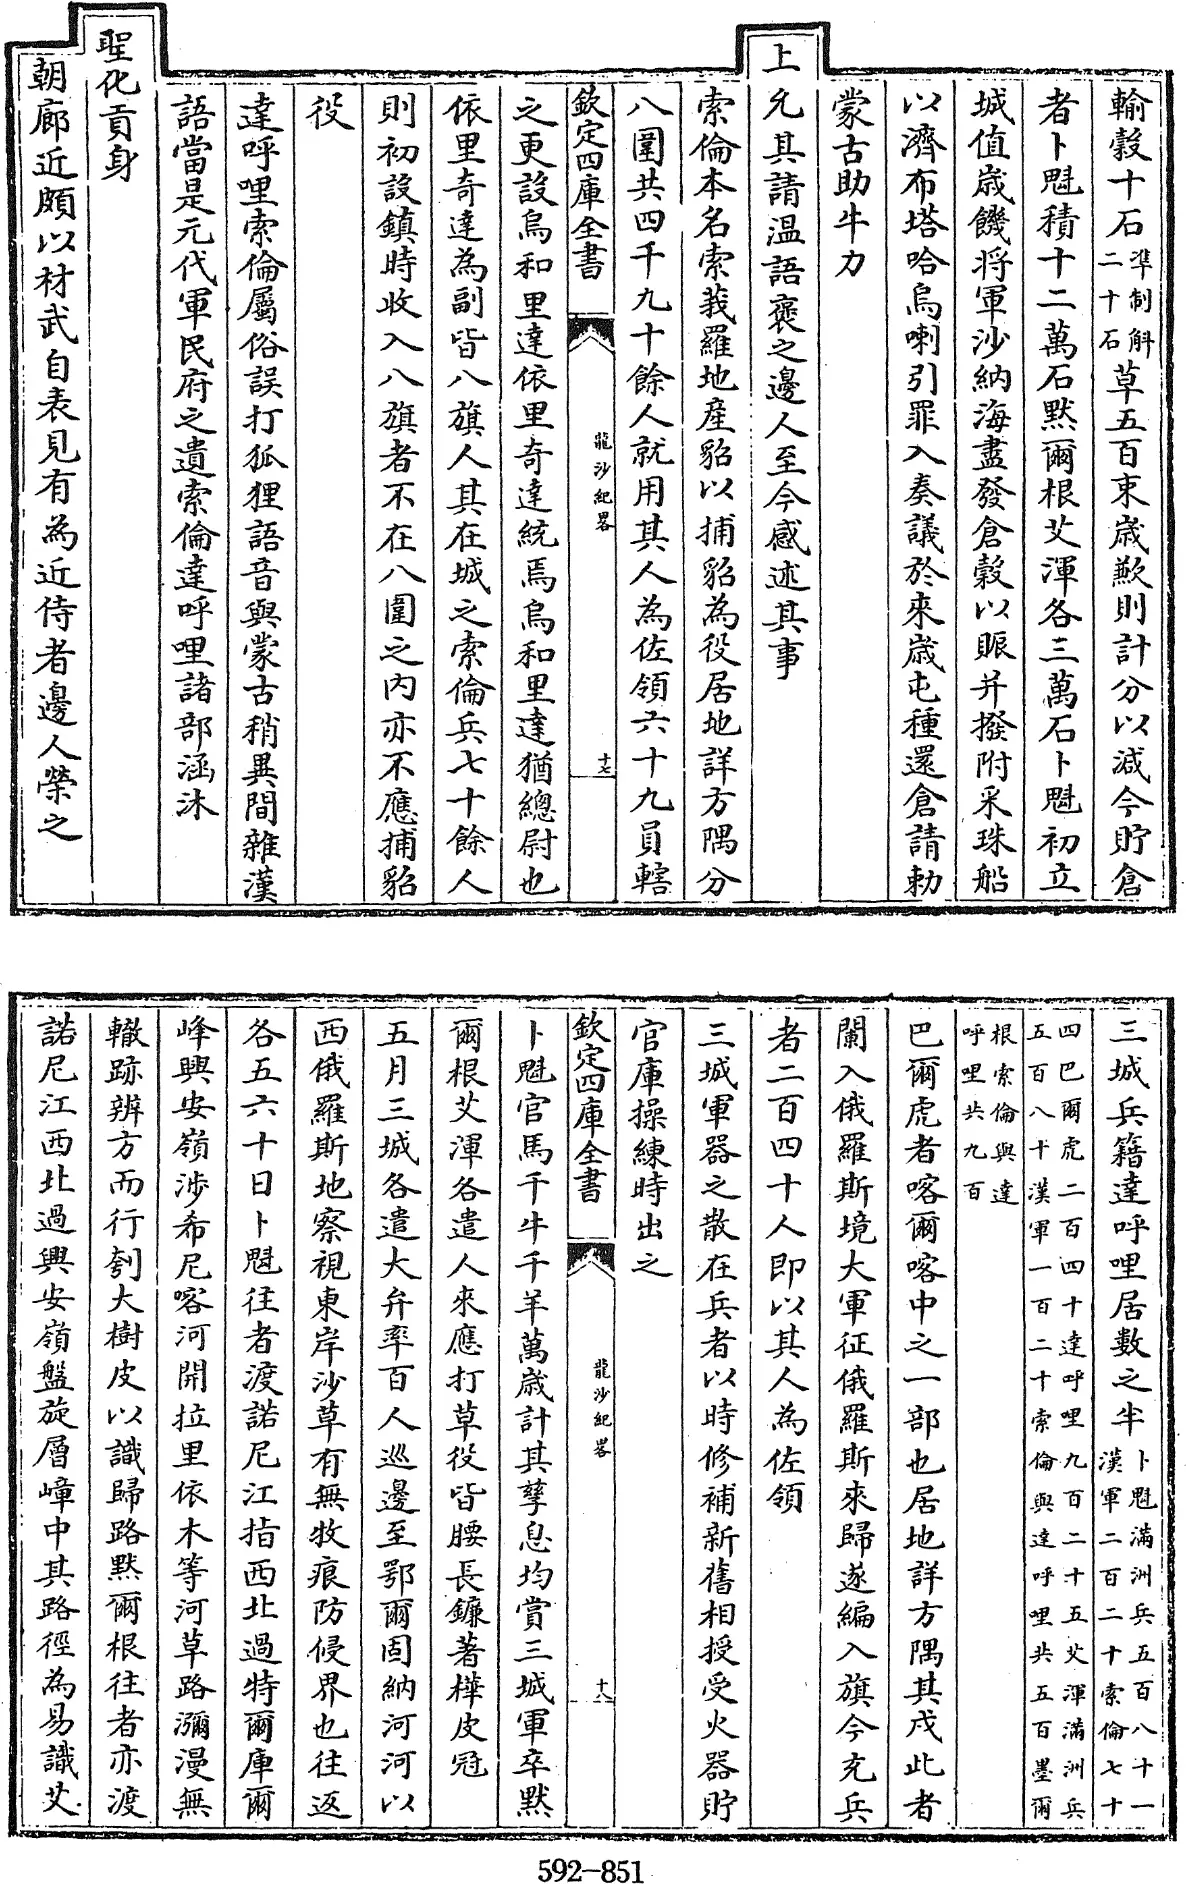 輸穀十石準制斛二十石草五百束歲歉則計分以減今貯倉
者卜魁積十二萬石黙爾根艾渾各三萬石卜魁初立
城值歲饑將軍沙納海盡發倉穀以賑并撥附采珠船
以濟布塔哈烏喇引罪入奏議於來歲屯種還倉請勅
蒙古助牛力
上允其請温語褒之邊人至今感述其事
索倫本名索莪羅地産貂以捕貂為役居地詳方隅分
八圍共四千九十餘人就用其人為佐領六十九員轄
欽定四庫全書
龍沙紀畧
十七
之更設烏和里達依里奇達統焉烏和里達猶總尉也
依里奇達為副皆八旗人其在城之索倫兵七十餘人
則初設鎮時收入八旗者不在八圍之内亦不應捕貂
役
達呼哩索倫屬俗誤打狐狸語音與蒙古稍異間雜漢
語當是元代軍民府之遺索倫達呼哩諸部涵沐
聖化貢身
朝廊近頗以材武自表見有為近侍者邊人榮之
三城兵籍達呼哩居數之半卜魁滿洲兵五百八十一漢軍二百二十索倫七十
四巴爾虎二百四十達呼哩九百二十五艾渾滿洲兵五百八十漢軍一百二十索倫與達呼哩共五百墨爾
根索倫與達呼哩共九百
巴爾虎者喀爾喀中之一部也居地詳方隅其戍此者
闌入俄羅斯境大軍征俄羅斯來歸遂編入旗今充兵
者二百四十人即以其人為佐領
三城軍器之散在兵者以時修補新舊相授受火器貯
官庫操練時出之
欽定四庫全書
龍沙紀畧
十八
卜魁官馬千牛千羊萬歲計其孳息均賞三城軍卒黙
爾根艾渾各遣人來應打草役皆腰長鐮著樺皮冠
五月三城各遣大弁率百人巡邊至鄂爾固納河河以
西俄羅斯地察視東岸沙草有無牧痕防侵界也往返
各五六十日卜魁往者渡諾尼江指西北過特爾庫爾
峰興安嶺涉希尼喀河開拉里依木等河草路瀰漫無
轍跡辨方而行刳大樹皮以識歸路黙爾根往者亦渡
諾尼江西北過興安嶺盤旋層嶂中其路徑為易識艾
592-851